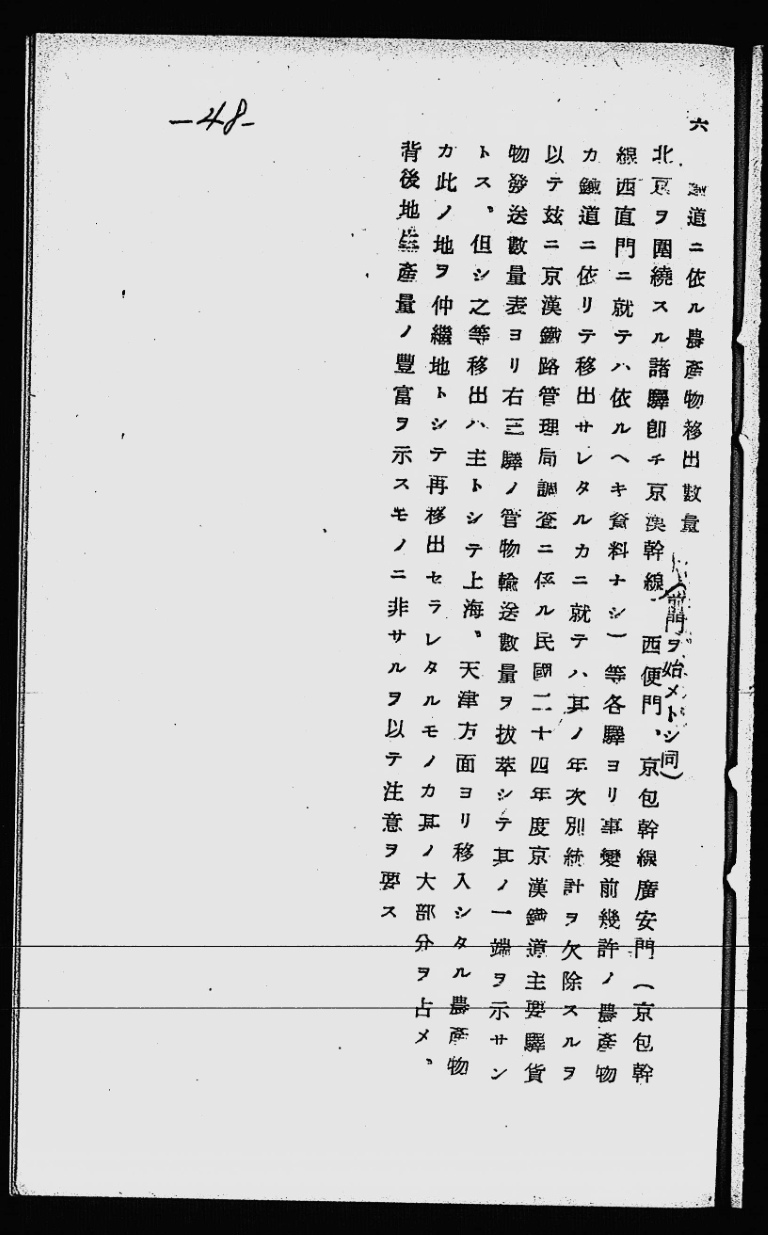 -48-
六
道ニ依ル農產物移出數量
北京ヲ圍繞スル諸驛卽チ京漢幹線 (前門ヲ始メトシ同) 西便門、京包幹線廣安門(京包幹
線西直門ニ就テハ依ルヘキ資料ナシ)等各驛ヨリ事變前幾許ノ農產物
カ鐵道ニ依リテ移出サレタルカニ就テハ其ノ年次別統計ヲ欠除スルヲ
以テ玆ニ京漢鐵路管理局調査ニ係ル民國二十四年度京漢鐵道主要驛貨
物發送數量表ヨリ右三驛ノ管物輸送數量ヲ拔萃シテ其ノ一端ヲ示サン
トス、但シ之等移出ハ主トシテ上海、天津方面ヨリ移入シタル農產物
カ此ノ地ヲ仲繼地トシテ再移出セラレタルモノカ其ノ大部分ヲ占メ、
背後地產量ノ豐富ヲ示スモノニ非サルヲ以テ注意ヲ要ス